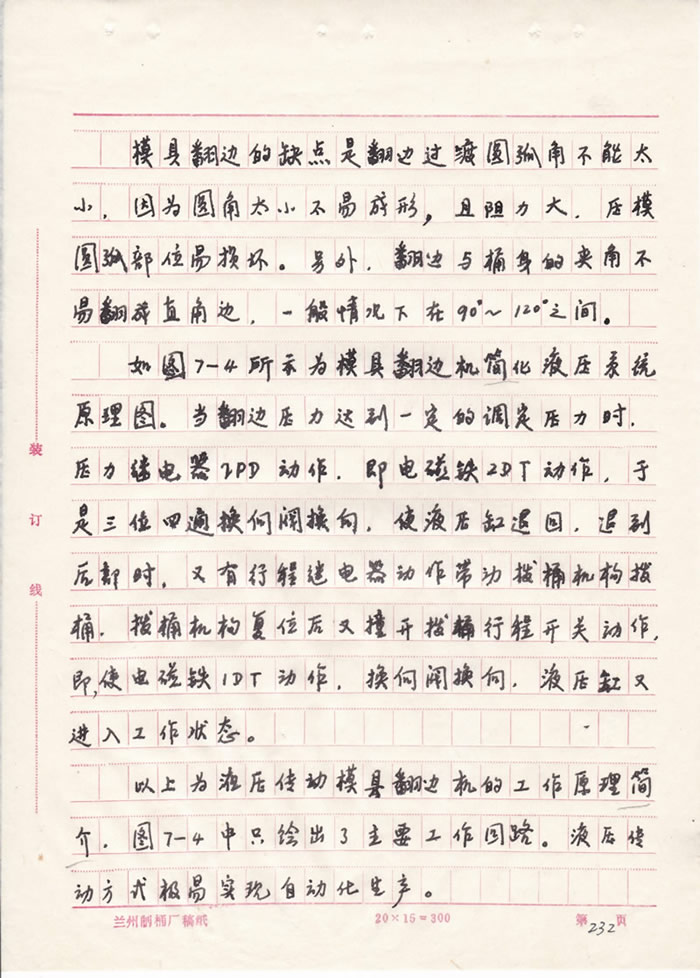 模具翻边的缺点是翻边过渡圆弧角不能太
小，因为圆角太小不易成形，且阻力大，压模
圆弧部位易损坏。另外，翻边与桶身的夹角不
易翻成直角边，一般情况下在90°～120°之间。
如图7-4所示为模具翻边机简化液压系统
原理图。当翻边压力达到一定的调定压力时，
压力继电器2PD动作，即电磁铁2DT动作，于
是三位四通换向阀换向，使液压缸退回，退到
后部时，又有行程继电器动作带动拨桶机构拨
桶，拨桶机构复位后又撞开拨桶行程开关动作，
即使电磁铁1DT动作，换向阀换向，液压缸又
进入工作状态。
以上为液压传动模具翻边机的工作原理简
介，图7-4中只绘出了主要工作回路。液压传
动方式极易实现自动化生产。
装
订
线
兰州制桶厂稿纸
20×15=300
第232页